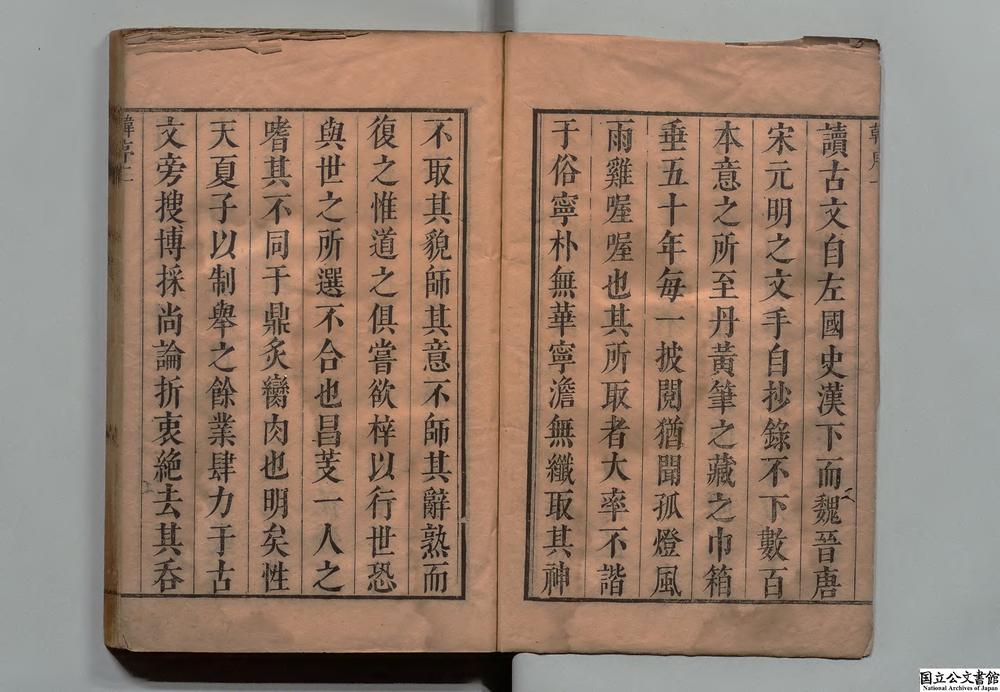 讀古文自左國史漢下而魏晉唐
宋元明之文手自抄錄不下數百
本意之所至丹黃筆之藏之巾箱
垂五十年每一披閱猶聞孤燈風
雨雞喔喔也其所取者大率不諧
于俗寧朴無華寧澹無纖取其神
不取其貌師其意不師其辭熟而
復之惟道之俱嘗欲梓以行世恐
與世之所選不合也昌芰一人之
嗜其不同于鼎炙臠肉也明矣性
天夏子以制舉之餘業肆力于古
文旁搜博採尚論折衷絶去其吞
國立公文書館
National Archives of Japan